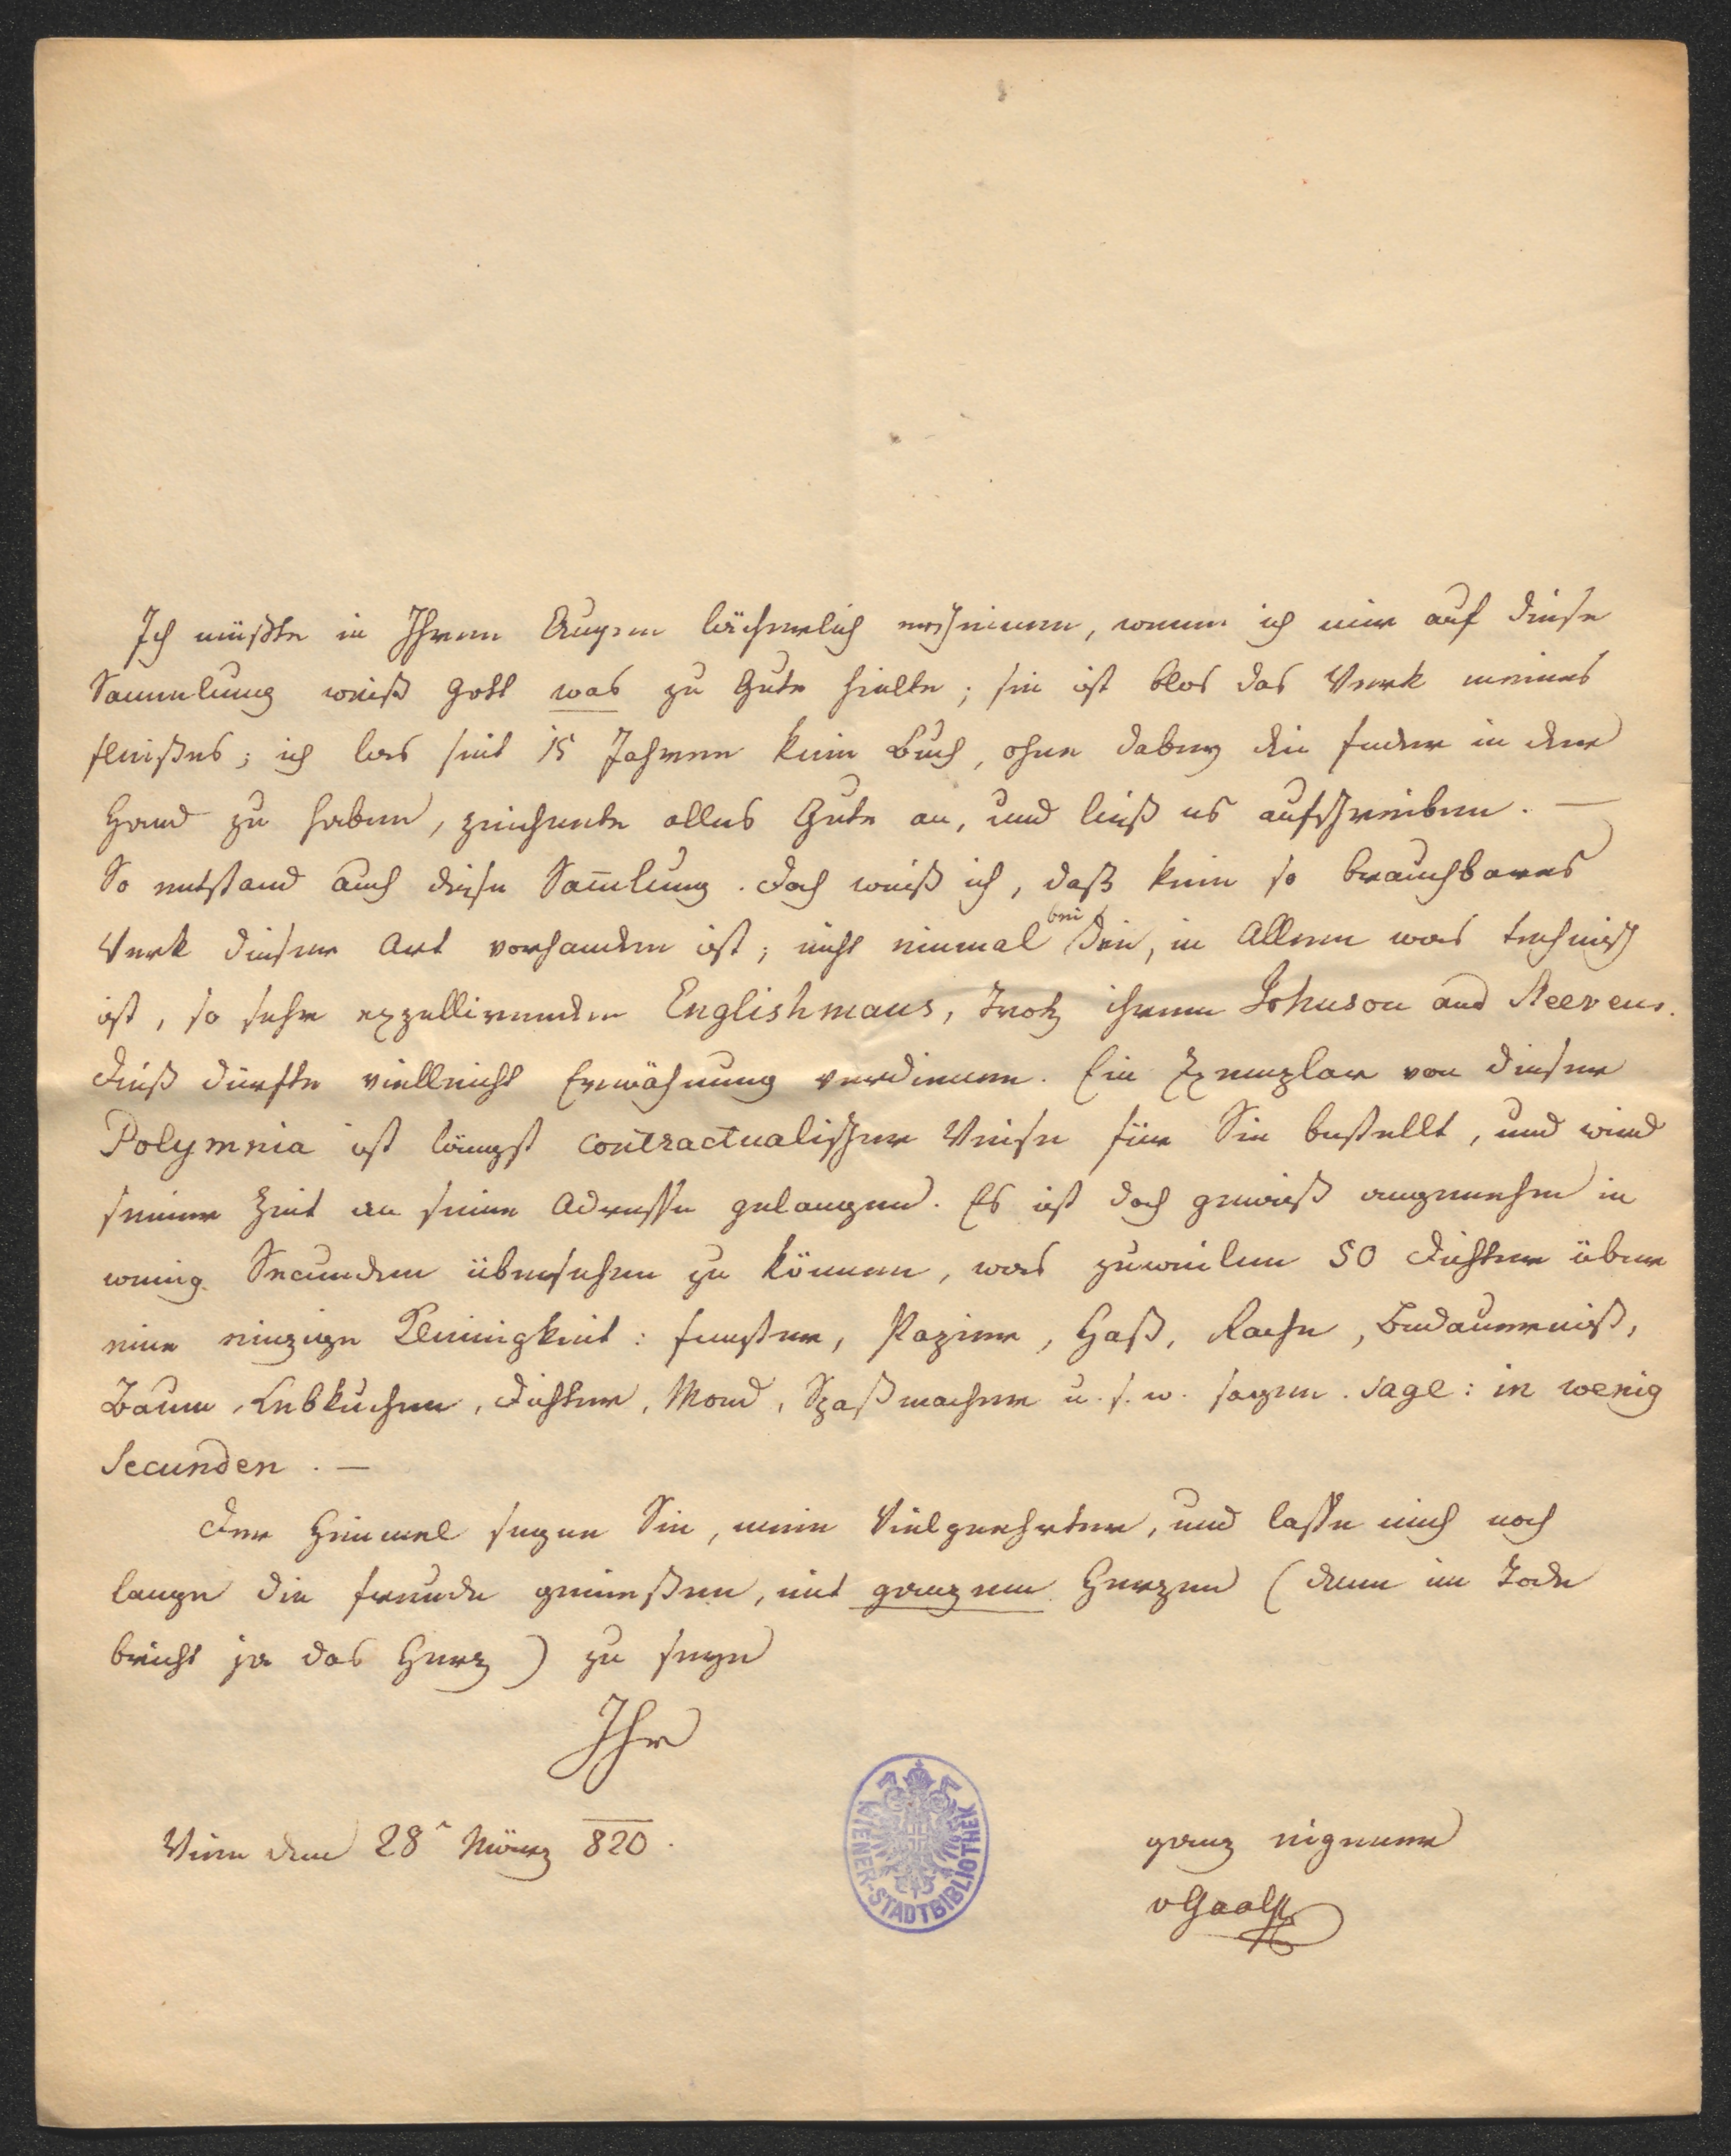 Ich müßte in Ihren Augen lächerlich erscheinen, wenn ich mir auf diese
Sammlung weiß Gott was zu Gute hielte; sie ist blos das Werk meines
Fleißes; ich las seit 15 Jahren kein Buch, ohne dabey die Feder in der
Hand zu haben, zeichnete alles Gute an, und ließ es aufschreiben. —
So entstand auch diese Sam̅lung. Doch weiß ich, daß kein so brauchbares
Werk dieser Art vorhanden ist; nicht einmal bei den, in Allem was technisch
ist, so sehr exzellirenden Englishmans, trotz ihrem Johnson and Steevens.
Dieß dürfte vielleicht Erwähnung verdienen. Ein Exemplar von dieser
Polymnia ist längst contractualischer Weise für Sie bestellt, und wird
seiner Zeit an seine Adresse gelangen. Es ist doch gewiß angenehm in
wenig Secunden übersehen zu können, was zuweilen 50 Dichter über
eine einzige Kleinigkeit: Fenster, Papier, Haß, Rache, Bedauerniß,
Baum, Lebkuchen, Dichter, Mond, Spaßmacher u. s. w. sagen. sage: in wenig
Secunden. —
Der Himmel segne Sie, mein Vielgeehrter, und lasse mich noch
lange die Freude genießen, mit ganzem Herzen (denn im Tode
bricht ja das Herz) zu seyn
Ihr
Wien den 28ˆ März 820.
ganz eigener
vGaal
WIENER-STADTBIBLIOTHEK